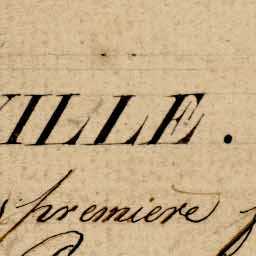 VILLE.
premiere